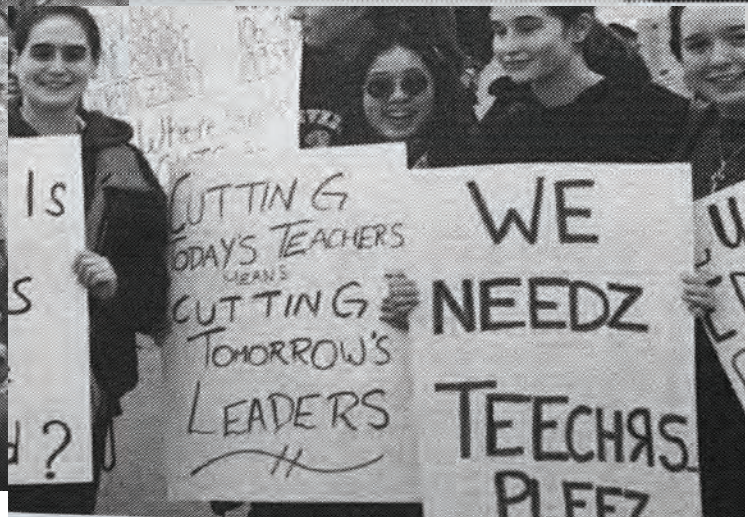 Is
s
d?
Where
CUTTING
TODAY'S TEACHERS
MEANS
CUTTING
TOMORROW'S
LEADERS
WE
NEEDZ
TEECHЯS
PLEEZ